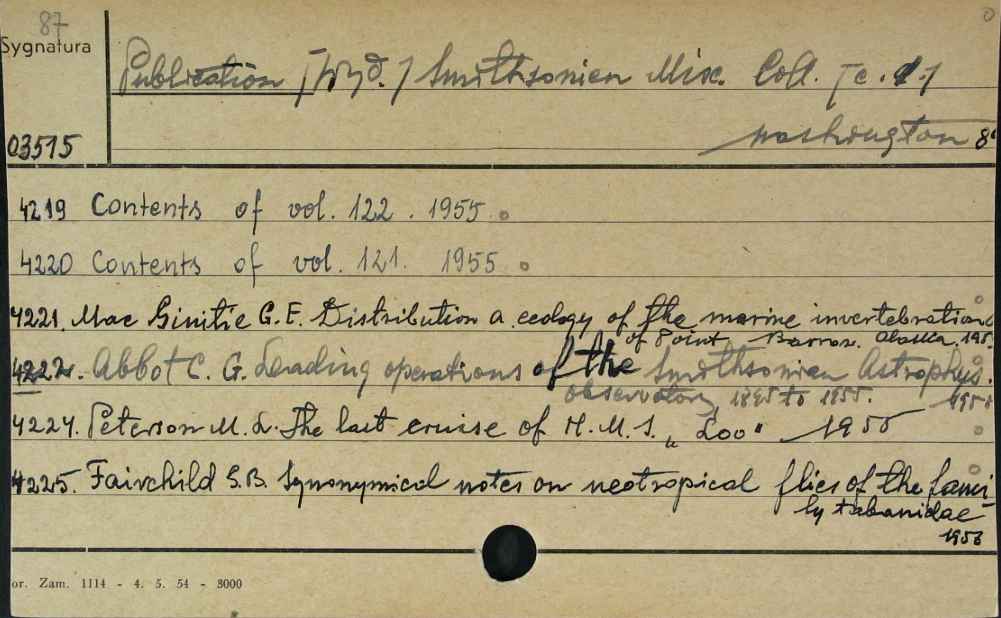 87
Sygnatura
Publication [Wyd.] Smithsonian Misc. Coll. [c.d.]
Washington 8°
03515
4219 Contents of vol. 122. 1955
4220 Contents of vol. 121. 1955
4221. Mac Ginitie G.E. Distribution a. ecology of the marine invertebrations
of Point Barrow. Alaska. 195
4222. Abbot C. G. Leading operations of the Smithsonian Astrophys.
observatory 1895 to 1955. 1955
4224. Peterson M. L. The last cruise of H.M.S. „Loo" 1955
4225. Fairchild G.B. Synonymical notes on neotropical flies of the fami
ly tabanidae
1956
or. Zam. 1114 - 4. 5. 54 - 3000